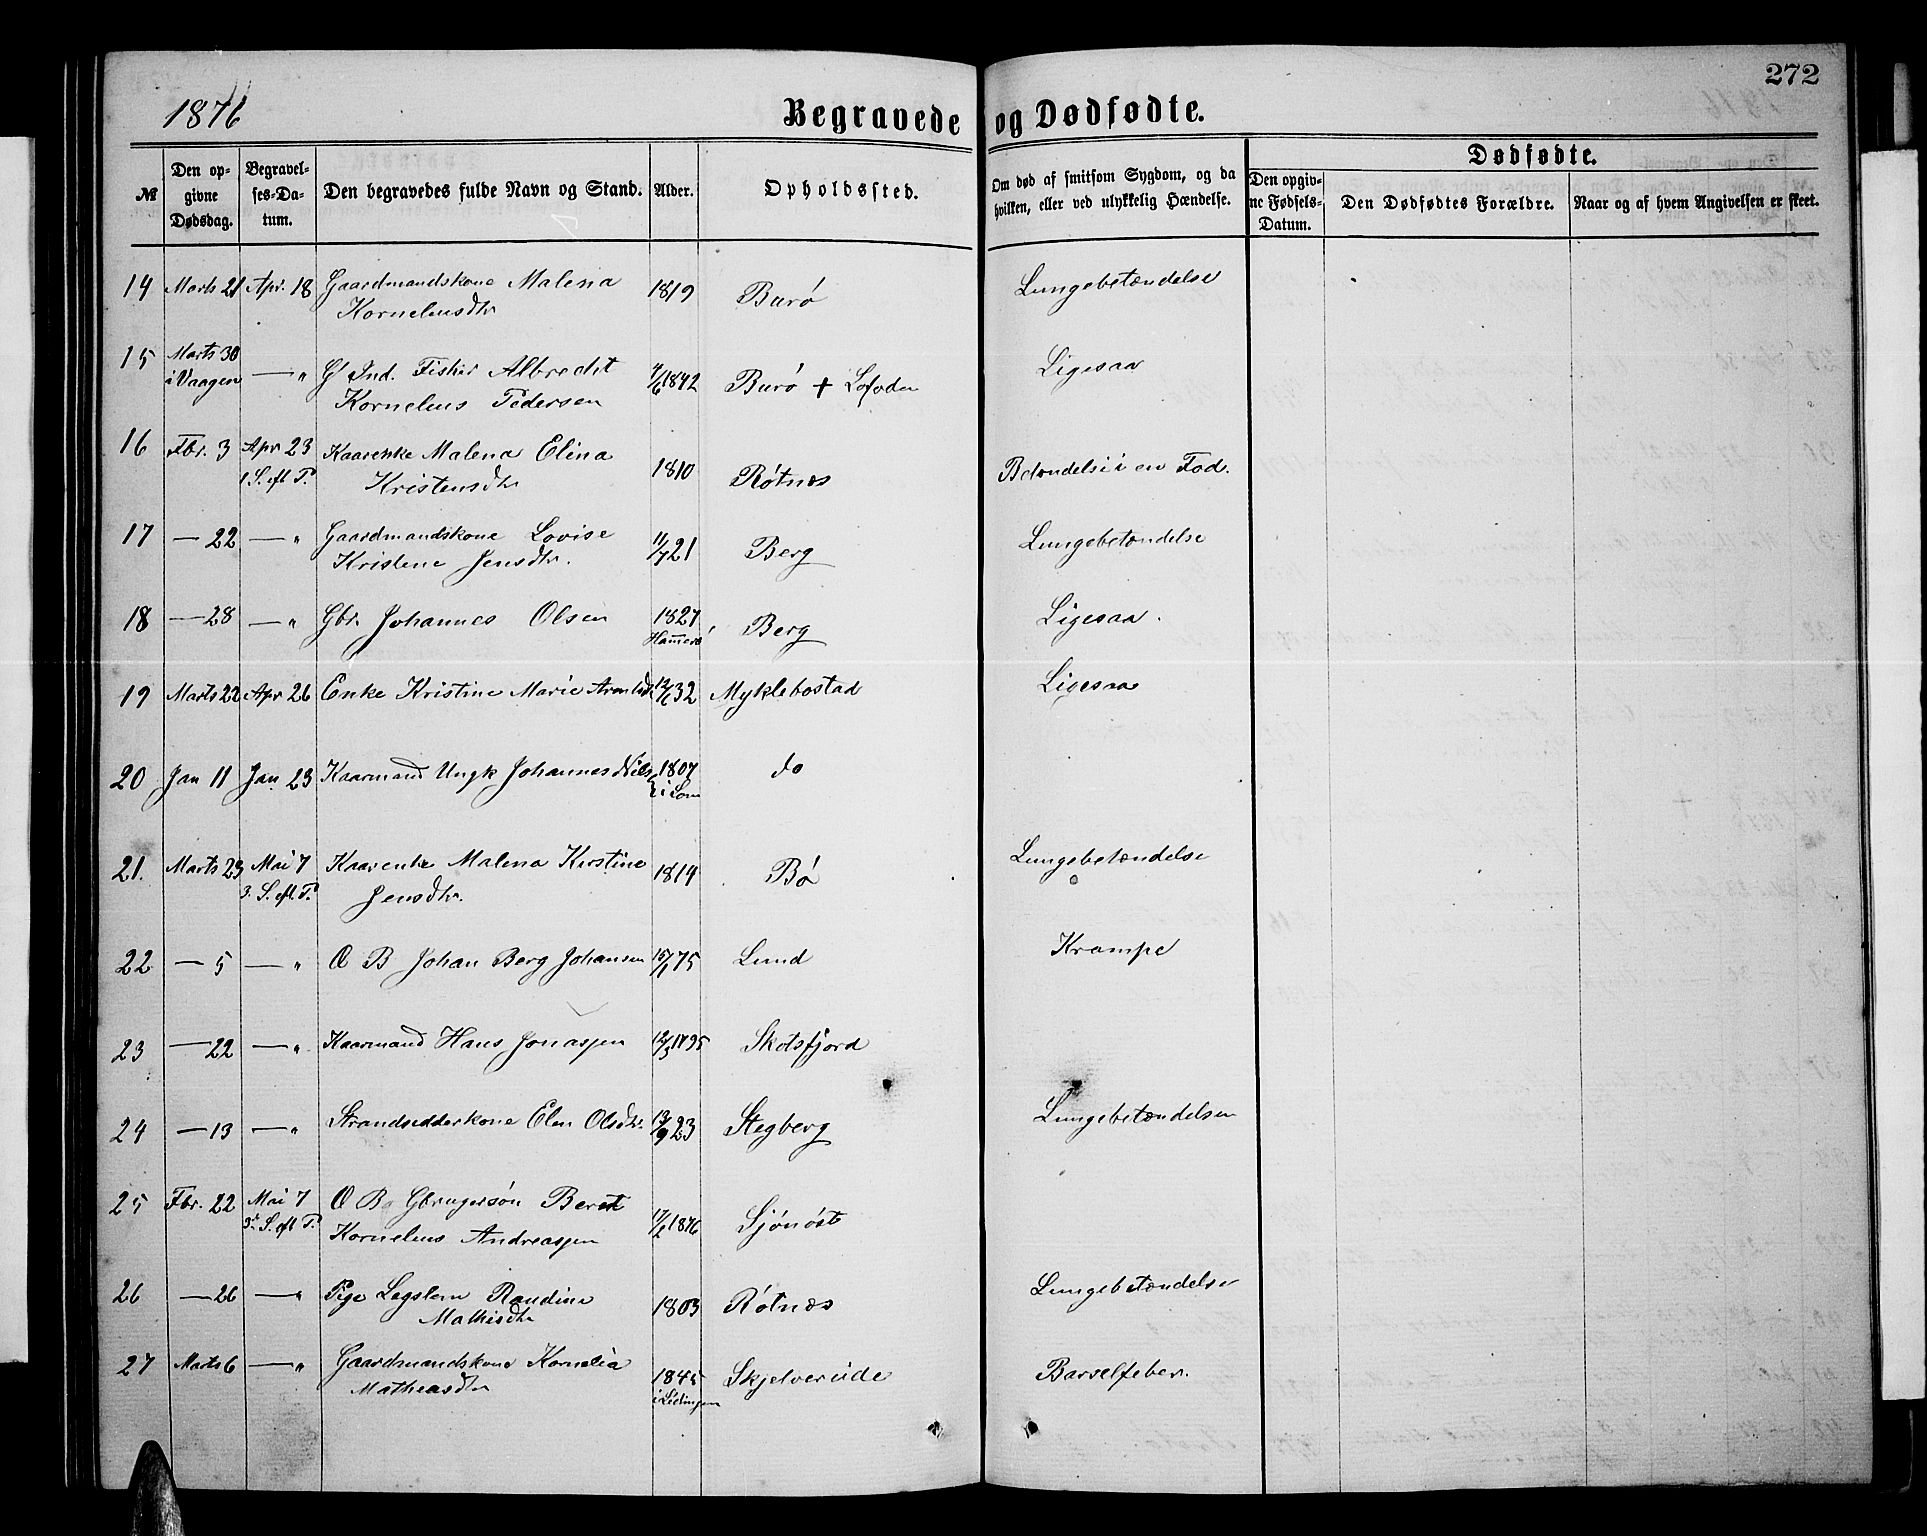 272
1876 Begravede og Dødfødte.
№ Den opgivne Dødsdag. Begravelses-Datum. Den begravedes fulde Navn og Stand. Alder. Opholdssted. Om død af smitsom Sygdom, og da hvilken, eller ved ulykkelig Hændelse. Dødfødte. Den opgivne Fødsels-Datum. Den Dødfødtes Forældre. Naar og af hvem Angivelsen er skeet.
14 Marts 21 Apr. 18 Gaardmandskone Malena 1819 Burø Lungebetændelse
Kornelensdtr
15 Marts 30 — " Ind. Fisker Albrecht 4/6 1842 Burø + Lofoden Ligesaa
i Vaagen Kornelius Pedersen
16 Fbr. 3 Apr 23 Kaarenke Malena Elina 1810 Røtnes Betændelse i en Fod.
1 S. eft P. Kristensdtr
17 — 22 — " Gaardmandskone Lovise 11/7 21 Berg Lungebetændelse
Kristene Jensdtr.
18 — 28 — " Gbr. Johannes Olsen 1827 Berg Ligesaa.
Hammerø
19 Marts 22 Apr 26 Enke Kristine Marie 12/6 32 Myklebostad Ligesaa
20 Jan 11 Jan 23 Kaarmand Ungk Johannes Nils 1807 do
i Lom
21. Marts 23 Mai 7 Kaarenke Malena Kirstine 1814 Bø Lungebetændelse
3. S. eft. P. Jensdtr.
22 — 5 — " O B Johan Berg Johansen 15/1 75 Lund Krampe
23 — 22 — " Kaarmand Hans Jonassen 12/3 1795 Skotsfjord
24 — 13 — " Strandsidderkone Elen Olsdtr. 13/9 23 Stegberg Lungebetændelsen
25 Fbr. 22 Mai 7 O B Gbrugersøn Berent 17/2 1876 Sjønøst
3. S. eft P. Kornelius Andreassen
26 — 26 — " Pige Legslem Randine 1803 Røtnes Lungebetændelse
Mathisdtr
27 Marts 6 — " Gaardmandskone Kornelia 1845 Skjelvereide Barselfeber.
Matheasdtr i Lødingen